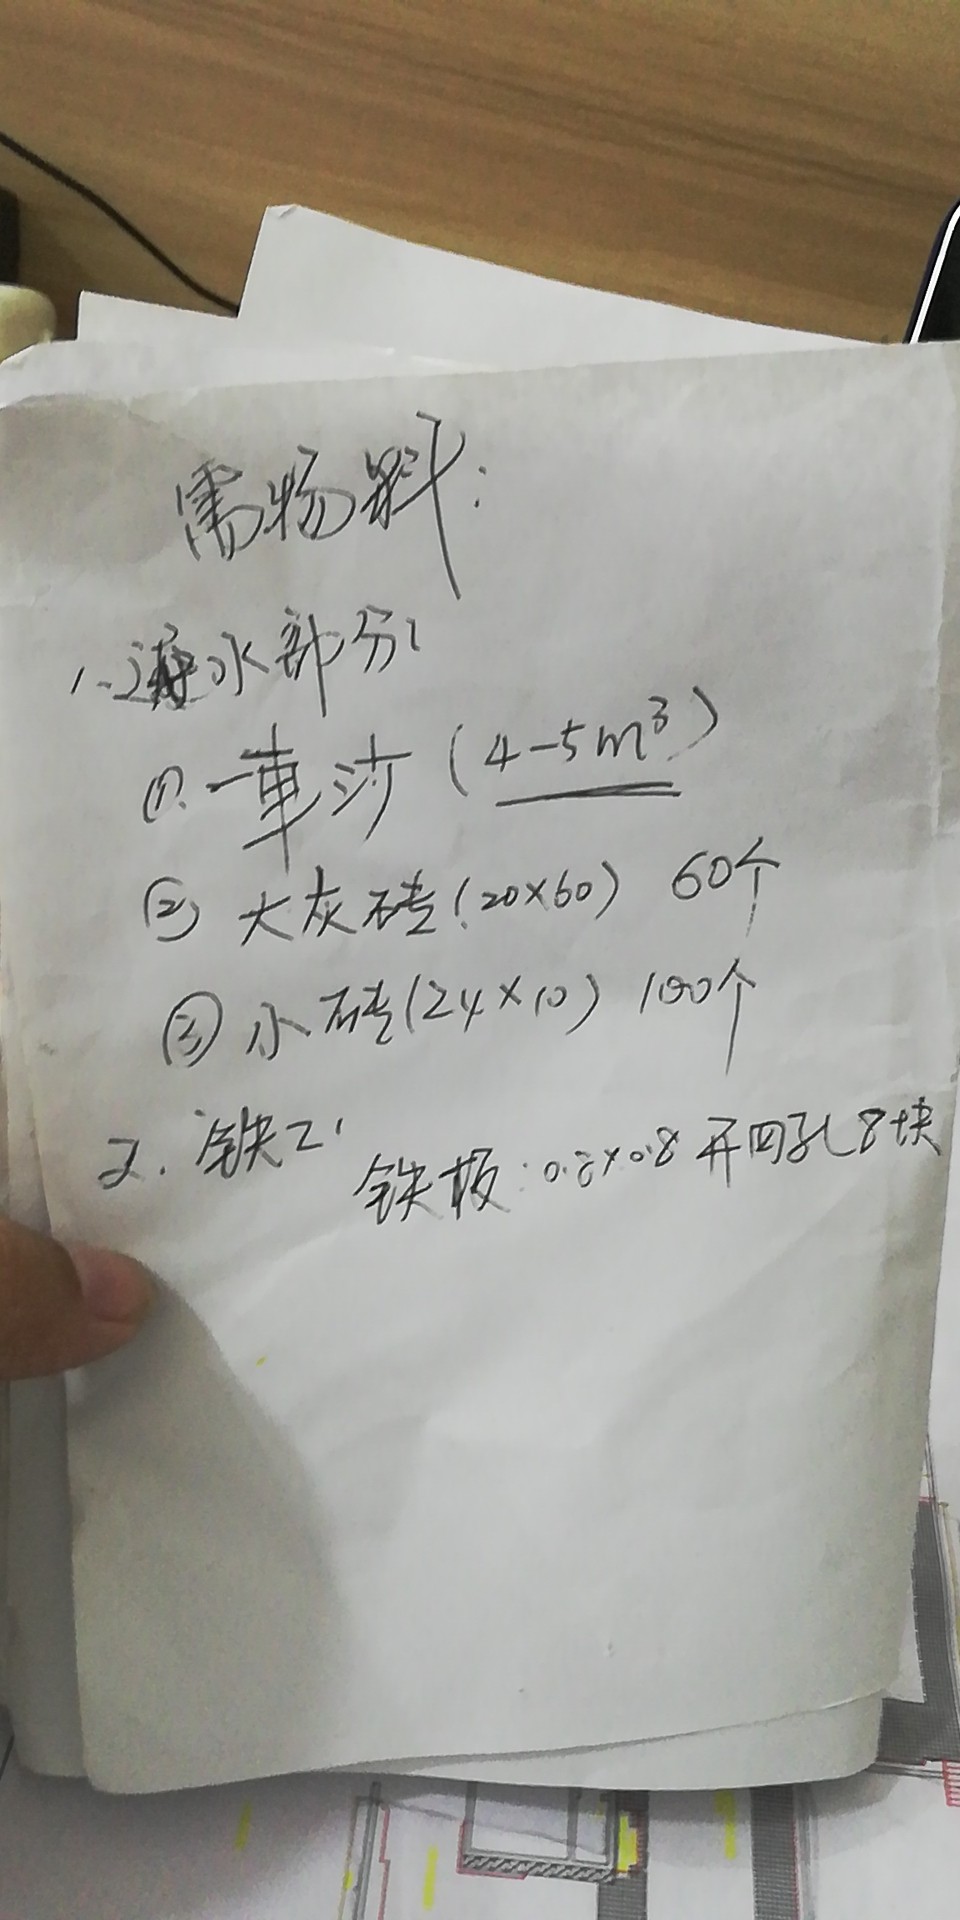 需物料：
1、水部分：
①、一車沙（4-5m³）
② 大灰砖（20×60） 60个
③ 小砖（24×10） 100个
2、铁工：
铁板：0.8×0.8开四孔8块